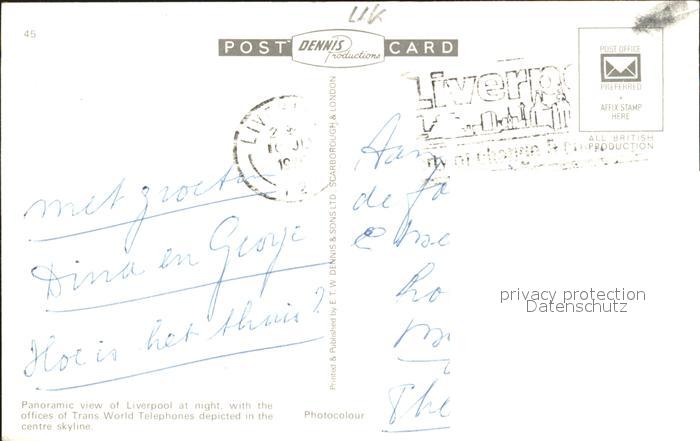 45
UK
POST DENNIS Productions CARD
POST OFFICE
PREFERRED
AFFIX STAMP
HERE
ALL BRITISH
PRODUCTION
Liverpo
LIV
met groeten
Dina en George
Hoe is het thuis?
Printed & Published by E. T. W. DENNIS & SONS LTD., SCARBOROUGH & LONDON
Aan
de fa
The
privacy protection
Datenschutz
Panoramic view of Liverpool at night, with the
offices of Trans World Telephones depicted in the
centre skyline.
Photocolour